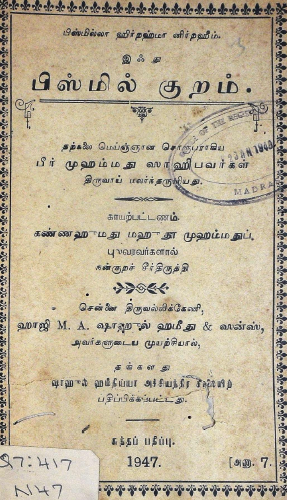 பிஸ்மில்லா ஹிர்றஹ்மா னிர்றஹீம்.
இஃது
பிஸ்மில் குறம்.
தற்கலை மெய்ஞ்ஞான சொரூபராகிய
பீர் முஹம்மது ஸாஹிபவர்கள்
திருவாய் மலர்ந்தருளியது.
காயற்பட்டணம்
கண்ணஹுமது மஹுதூ முஹம்மதுப்
புலவரவர்களால்
நன்குறச் சீர்திருத்தி
சென்னை திருவல்லிக்கேணி,
ஹாஜி M. A. ஷாஹுல் ஹமீது & ஸன்ஸ்,
அவர்களுடைய முயற்சியால்,
தங்களது
ஷாஹுல் ஹமீதிய்யா அச்சியந்திர
பதிப்பிக்கப்பட்டது.
சுத்தப் பதிப்பு.
1947.
[அணா 7.
Q7:417
N47
MADRA